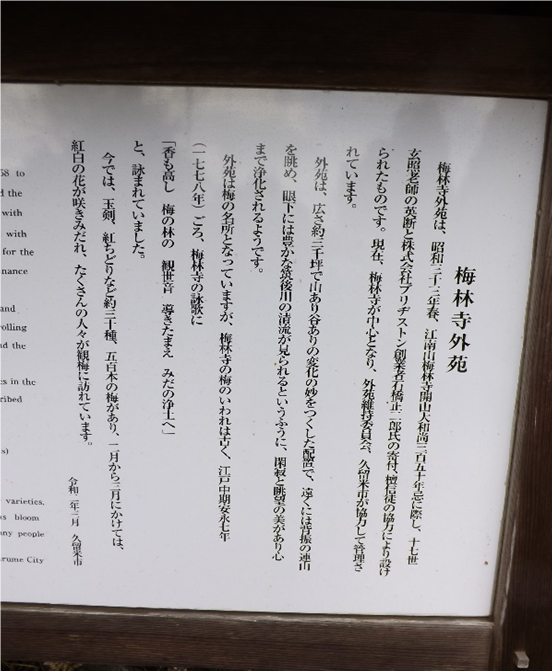 梅林寺外苑
梅林寺外苑は、昭和三十三年春、江南山梅林寺開山大和尚三百五十年忌に際し、十七世
玄照老師の英断と株式会社ブリヂストン創業者石橋正二郎氏の寄付、檀信徒の協力により設け
られたものです。現在、梅林寺が中心となり、外苑維持委員会、久留米市が協力して管理さ
れています。
外苑は、広さ約三千坪で山あり谷ありの変化の妙をつくした配置で、遠くには背振の連山
を眺め、眼下には豊かな筑後川の清流が見られるというふうに、閑寂と眺望の美があり心
まで浄化されるようです。
外苑は梅の名所となっていますが、梅林寺の梅のいわれは古く、江戸中期安永七年
(一七七八年)ごろ、梅林寺の詠歌に
「香も高し 梅の林の 観世音 導きたまえ みだの浄土へ」
と、詠まれていました。
今では、玉剣、紅ちどりなど約三十種、五百本の梅があり、一月から三月にかけては、
紅白の花が咲きみだれ、たくさんの人々が観梅に訪れています。
令和二年三月 久留米市
58 to
d the
with
with
for the
nance
and
rolling
nd the
s in the
ribed
s)
varieties,
s bloom
any people
urume City